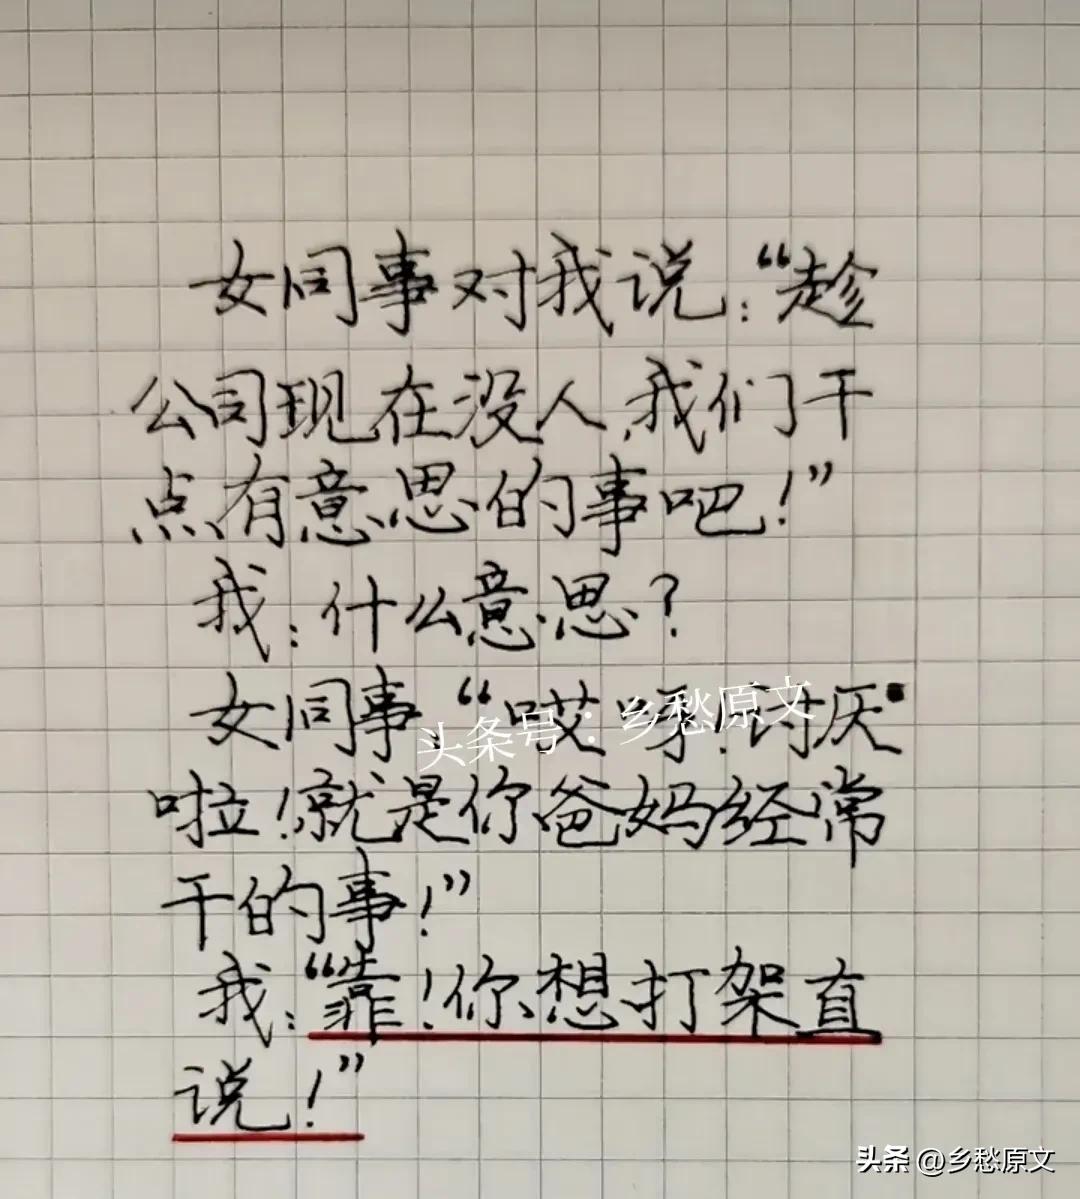 女同事对我说:“趁
公司现在没人,我们干
点有意思的事吧!”
我:什么意思?
女同事:“哎呀!讨厌
啦!就是你爸妈经常
干的事!”
我:“靠!你想打架直
说!”
头条号:乡愁原文
头条 @乡愁原文